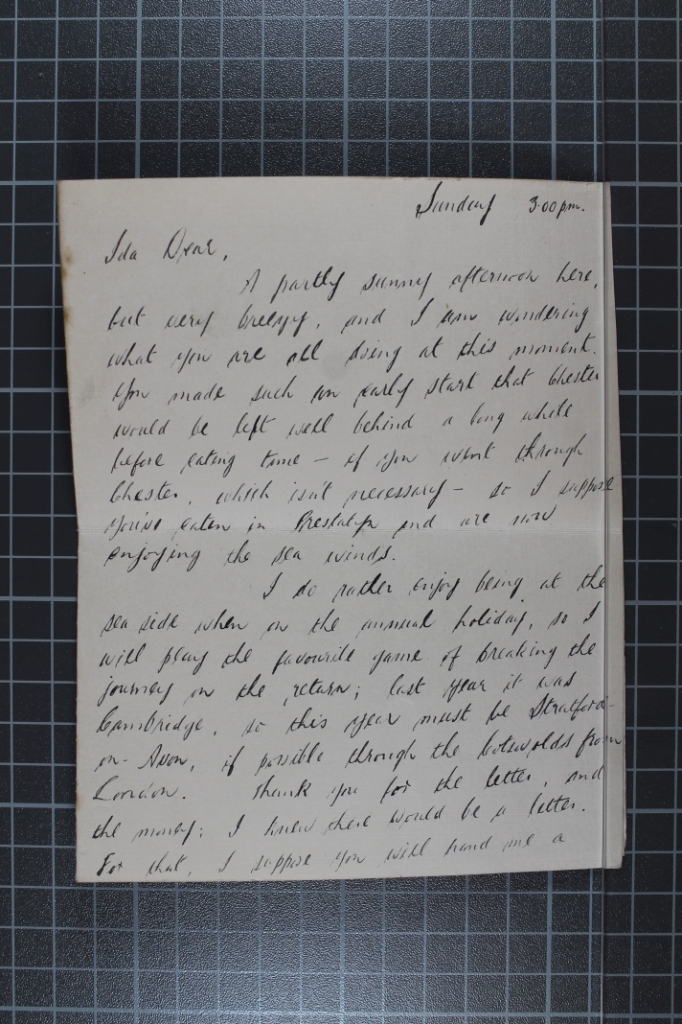 Sunday 3.00 p.m.
Ida Dear,
A partly sunny afternoon here,
but very breezy, and I am wondering
what you are all doing at this moment.
You made such an early start that Chester
would be left well behind a long while
before eating time – if you went through
Chester, which isn't necessary – so I suppose
you've eaten in Prestatyn and are now
enjoying the sea winds.
I do rather enjoy being at the
sea side when on the annual holiday, so I
will play the favourite game of breaking the
journey on the return; last year it was
Cambridge, so this year must be Stratford-
on-Avon, if possible through the Cotswolds from
London. Thank you for the letter, and
the money; I knew there would be a letter.
For that, I suppose you will hand me a